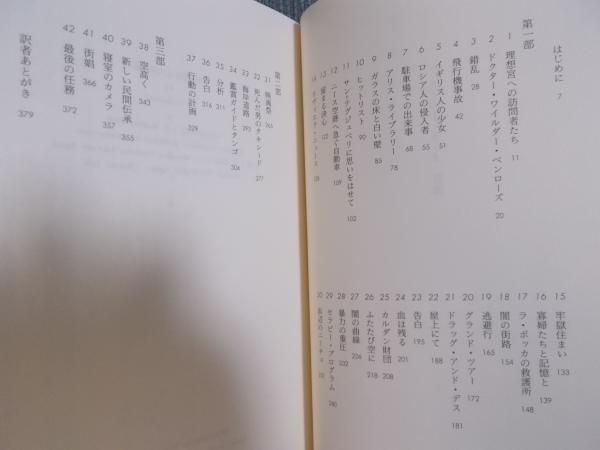 はじめに 7
第一部
1 理想宮への訪問者たち 11
2 ドクター・ワイルダー・ペンローズ 20
3 錯乱 28
4 飛行機事故 42
5 イギリス人の少女 51
6 ロシア人の侵入者 55
7 駐車場での出来事 68
8 アリス・ライブラリー 78
9 ガラスの床と白い壁 85
10 ヒットリスト 90
11 サン・テグジュペリに思いをはせて 102
12 ニース空港へ急ぐ自動車 109
13 留まる決心
14 リヴィエラ・ニュース
15 牢獄住まい 133
16 寡婦たちと記憶と 139
17 ラ・ボッカの救護所 148
18 闇の街路 154
19 逃避行 165
20 グランド・ツアー 172
21 ドラッグ・アンド・デス 181
22 屋上にて 188
23 告白 195
24 血は残る 201
25 カルダン財団 208
26 ふたたび空に 218
27 闇の曲線 226
28 暴力の重圧 232
29 セラピー・プログラム 240
30
第二部
31 映画祭 265
32 死んだ男のタキシード 277
33 海岸道路 293
34 鑑賞ガイドとタンゴ 304
35 分析 311
36 告白 316
37 行動の計画 329
第三部
38 空高く 343
39 新しい民間伝承 355
40 寝室のカメラ 357
41 街娼 366
42 最後の任務 372
訳者あとがき 379